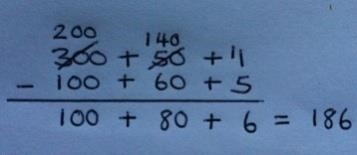 200 140
300 + 50 + 11
- 100 + 60 + 5
100 + 80 + 6 = 186